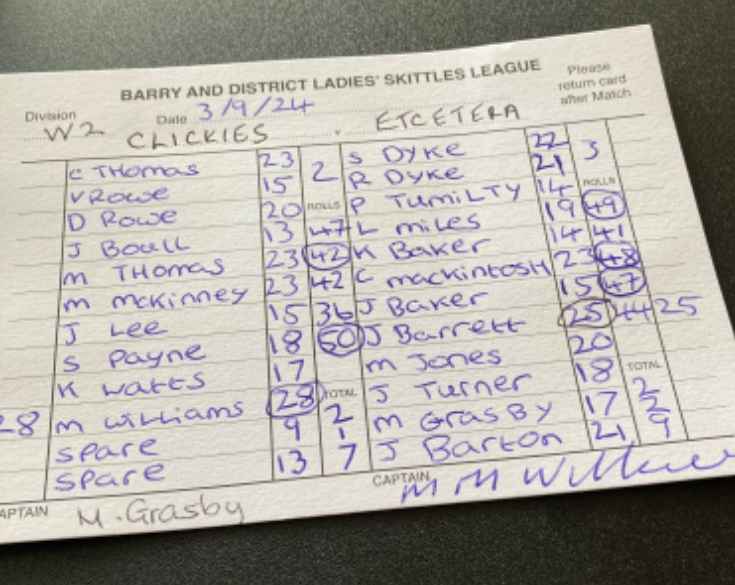 BARRY AND DISTRICT LADIES' SKITTLES LEAGUE
Please return card after Match
Division W2 Date 3/9/24
CLICKIES v ETCETERA
C THOMAS 23 2 S DYKE 22 3
V ROWE 15 R DYKE 21
D ROWE 20 ROLLS P TUMILTY 14 ROLLS
J BOULL 13 47 L MILES 19 49
M THOMAS 23 42 K BAKER 14 41
M MCKINNEY 23 42 C MACKINTOSH 23 48
J LEE 15 36 J BAKER 15 47
S PAYNE 18 50 J BARRETT 25 44 25
K WATTS 17 M JONES 20
28 M WILLIAMS 28 TOTAL J TURNER 18 TOTAL
SPARE 9 2 1 M GRASBY 17 2 2
SPARE 13 7 J BARTON 21 9
CAPTAIN M. Grasby CAPTAIN M M